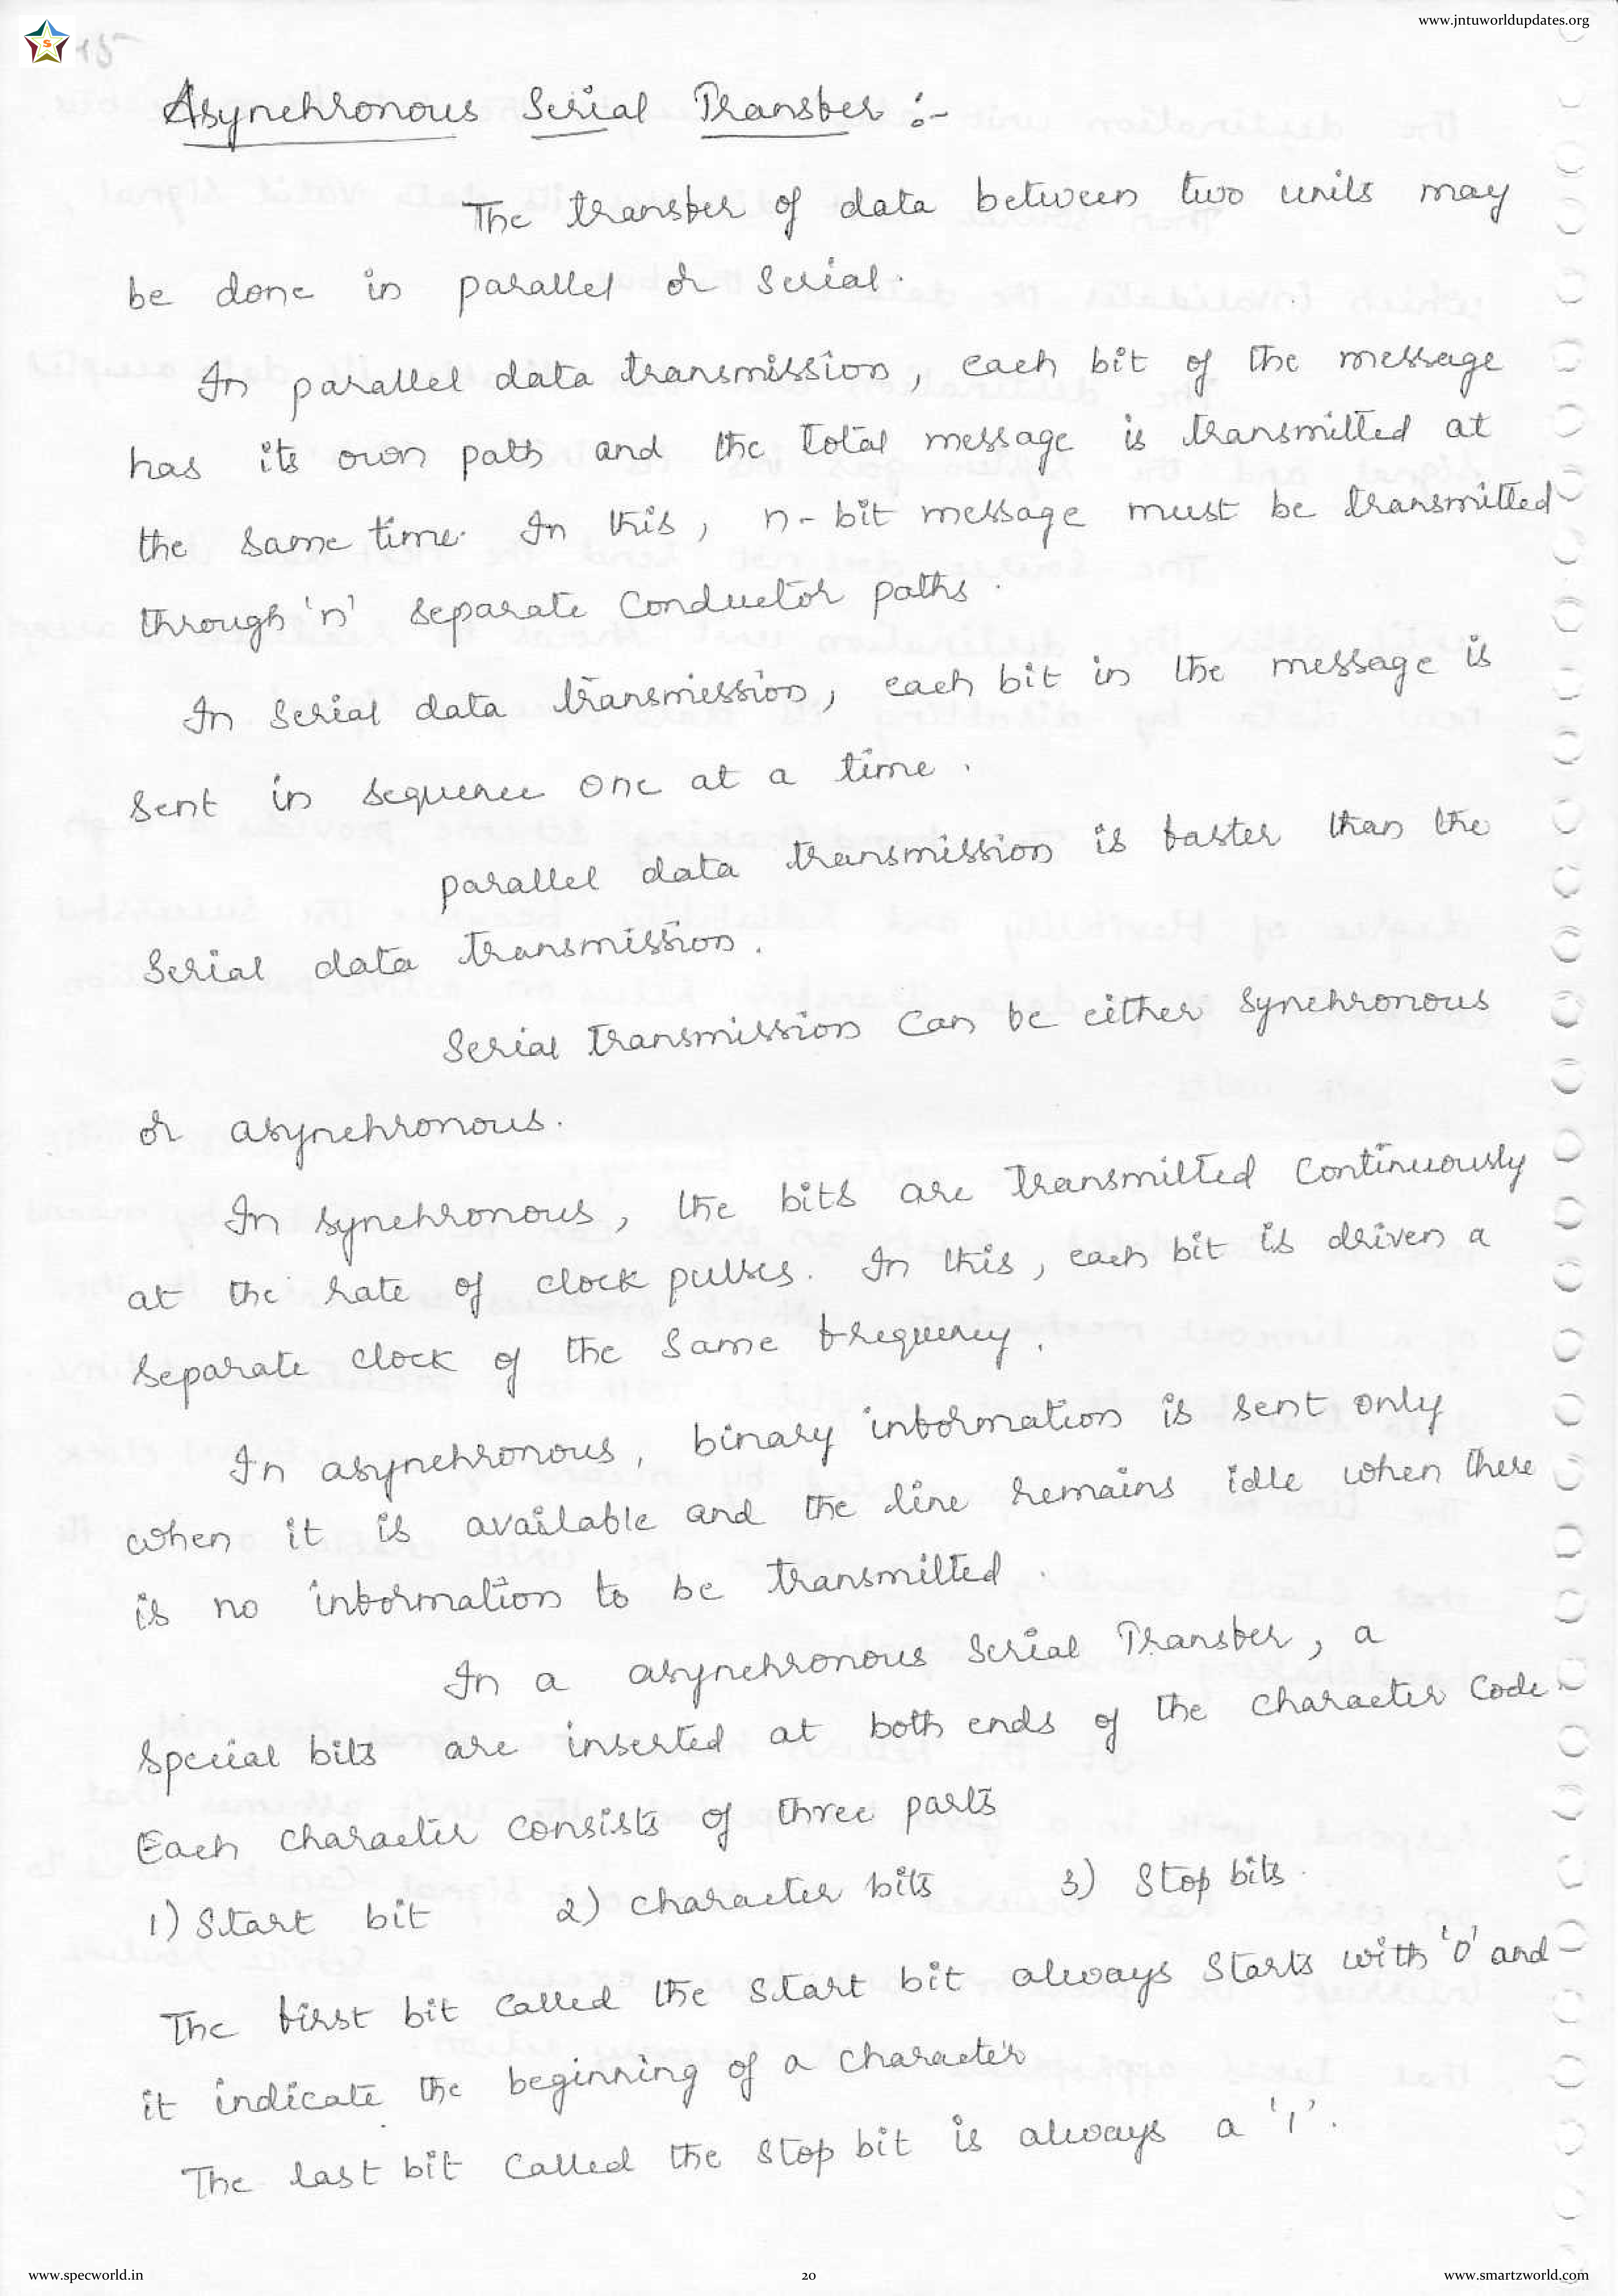 www.jntuworldupdates.org
Asynchronous Serial Transfer :-
The transfer of data between two units may
be done in parallel or serial.
In parallel data transmission, each bit of the message
has its own path and the total message is transmitted at
the same time. In this, n-bit message must be transmitted
through 'n' separate conductor paths.
In serial data transmission, each bit in the message is
sent in sequence one at a time.
parallel data transmission is faster than the
serial data transmission.
Serial transmission can be either synchronous
or asynchronous.
In synchronous, the bits are transmitted continuously
at the rate of clock pulses. In this, each bit is driven a
separate clock of the same frequency.
In asynchronous, binary information is sent only
when it is available and the line remains idle when there
is no information to be transmitted.
In a asynchronous serial Transfer, a
special bits are inserted at both ends of the character code
Each character consists of three parts
1) Start bit 2) character bits 3) Stop bits.
The first bit called the start bit always starts with '0' and
it indicate the beginning of a character
The last bit called the stop bit is always a '1'.
www.specworld.in 20 www.smartzworld.com